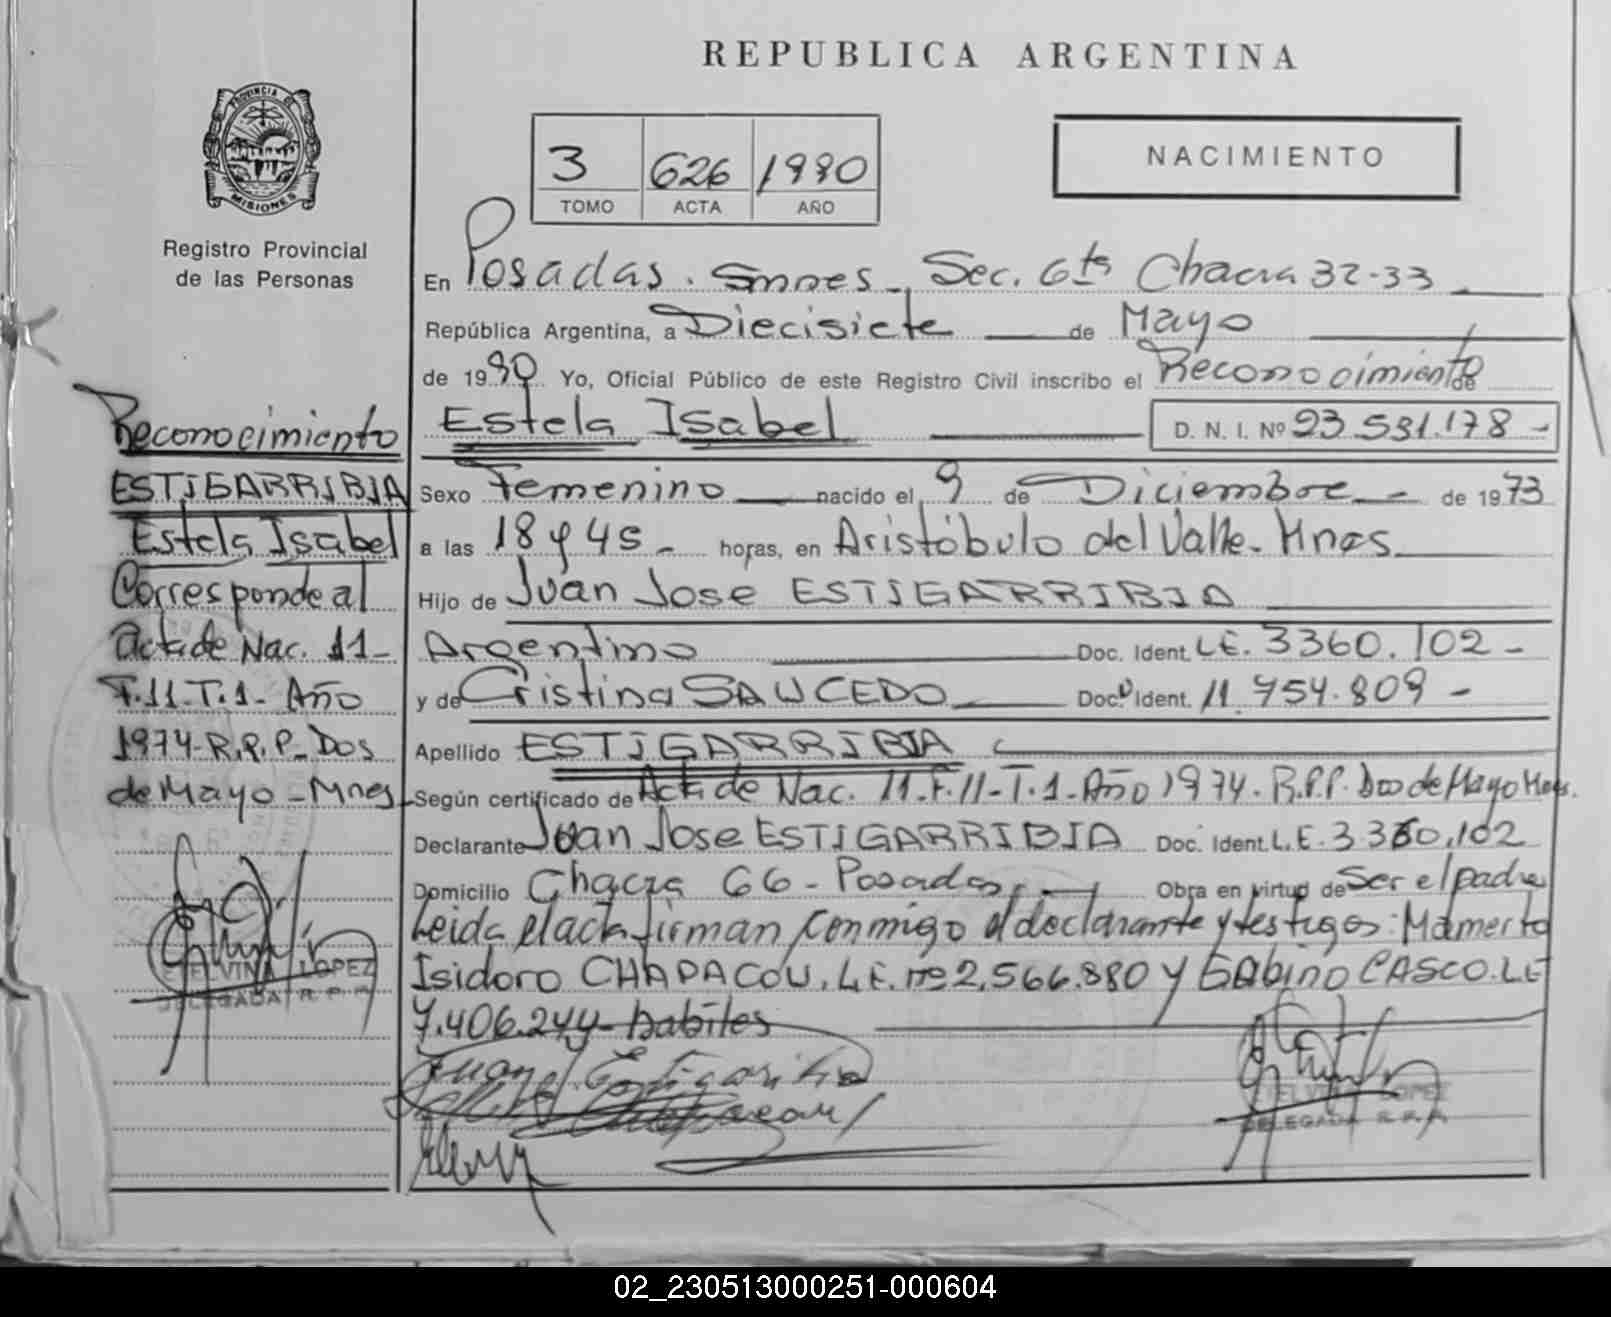 REPUBLICA ARGENTINA
PROVINCIA DE
MISIONES
Registro Provincial
de las Personas
3 626 1990
TOMO ACTA AÑO
NACIMIENTO
En Posadas. Sec. 6ta Chacra 32-33
República Argentina, a Diecisiete de Mayo
de 1990 Yo, Oficial Público de este Registro Civil inscribo el Reconocimiento de
Estela Isabel D. N. I. Nº 23.531.178-
Sexo Femenino nacido el 9 de Diciembre - de 1973
a las 18 y 45 - horas, en Aristóbulo del Valle- Mnes
Hijo de Juan Jose ESTIGARRIBIA
Argentino Doc. Ident. LE. 3360.102 -
y de Cristina SAUCEDO Doc. Ident. 11.754.809 -
Apellido ESTIGARRIBIA
Según certificado de Acta de Nac. 11-F.11-T.1-Año 1974. R.P.P. Dos de Mayo Mnes.
Declarante Juan Jose ESTIGARRIBIA Doc. Ident. L.E. 3360.102
Domicilio Chacra 66 - Posadas, Obra en virtud de Ser el padre
Leida el acta firman conmigo el declarante y testigos: Mamerto
Isidoro CHAPACOU. L.E. nº 2.566.880 y Gabino CASCO. LE
7.406.244- habiles
Reconocimiento
ESTIGARRIBIA
Estela Isabel
Corresponde al
Acta de Nac. 11-
F.11-T.1- Año
1974-R.P.P- Dos
de Mayo - Mnes
ELVINA LOPEZ
DELEGADA R.P.P.
ELVINA LOPEZ
DELEGADA R.P.P.
02_230513000251-000604